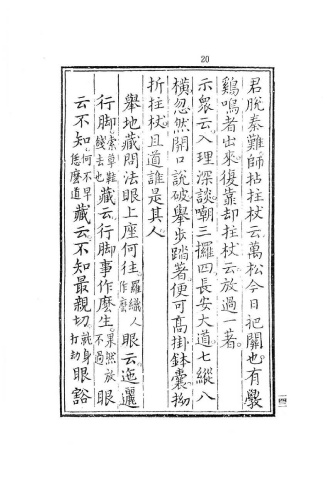 20
君脫秦難師拈拄杖云萬松今日把關也有斆
鷄鳴者出來復靠却拄杖云放過一著
示衆云入理深談嘲三攞四長安大道七縱八
橫忽然開口說破舉步踏著便可髙掛鉢囊拗
折拄杖且道誰是其人
舉地藏問法眼上座何往羅織人作麽眼云迤邐
行脚索草鞋錢去也藏云行脚事作麽生果然放不過眼
云不知何不早恁麽道藏云不知最親切就身打劫眼豁
四